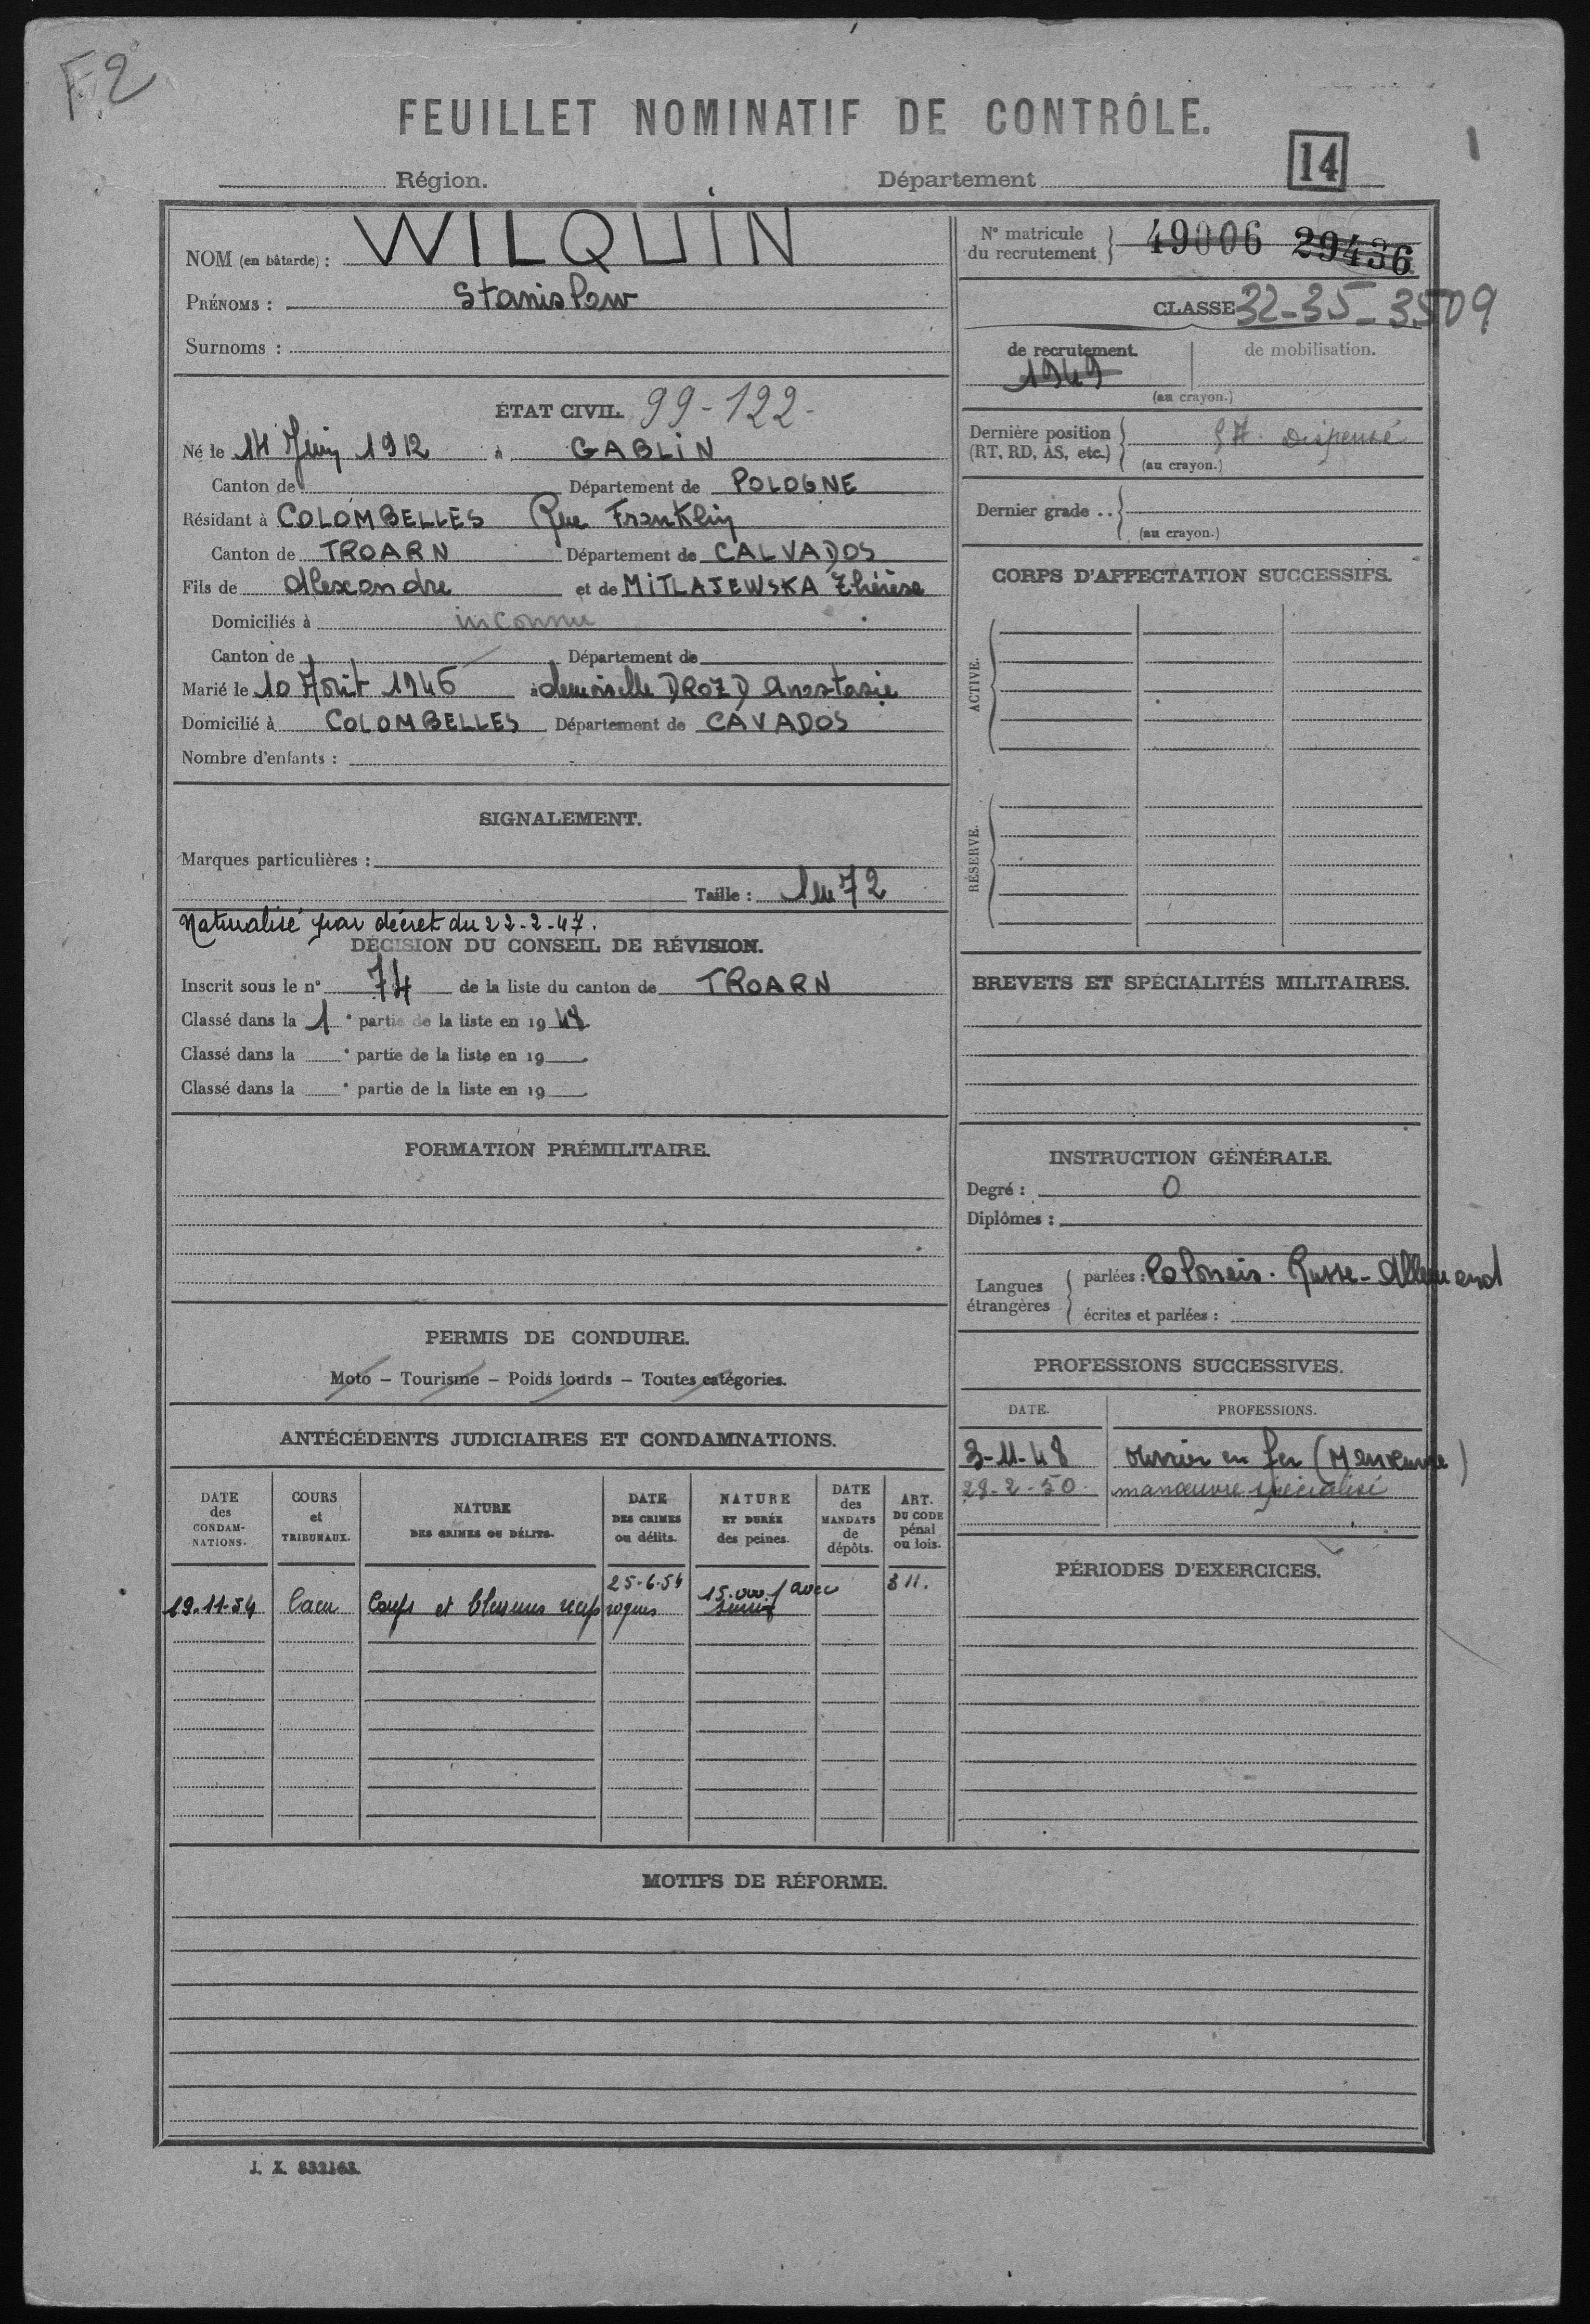 F2
FEUILLET NOMINATIF DE CONTRÔLE.
14
Région. Département
NOM (en bâtarde) : WILQUIN
PRÉNOMS : Stanislaw
Surnoms :
ÉTAT CIVIL. 99-122-
Né le 14 Juin 1912 à GABLIN
Canton de Département de POLOGNE
Résidant à COLOMBELLES Rue Franklin
Canton de TROARN Département de CALVADOS
Fils de Alexandre et de MITLAJEWSKA Thérèse
Domiciliés à inconnu
Canton de Département de
Marié le 10 Août 1946 à demoiselle DROZD Anastasie
Domicilié à COLOMBELLES Département de CAVADOS
Nombre d'enfants :
SIGNALEMENT.
Marques particulières :
Taille : 1m72
Naturalisé par décret du 22-2-47.
DÉCISION DU CONSEIL DE RÉVISION.
Inscrit sous le n° 74 de la liste du canton de TROARN
Classé dans la 1 e partie de la liste en 1948
Classé dans la e partie de la liste en 19
Classé dans la e partie de la liste en 19
FORMATION PRÉMILITAIRE.
PERMIS DE CONDUIRE.
Moto – Tourisme – Poids lourds – Toutes catégories.
ANTÉCÉDENTS JUDICIAIRES ET CONDAMNATIONS.
DATE des CONDAMNATIONS.
COURS et TRIBUNAUX.
NATURE DES CRIMES OU DÉLITS.
DATE DES CRIMES ou délits.
NATURE ET DURÉE des peines.
DATE des MANDATS de dépôts.
ART. DU CODE pénal ou lois.
25-6-54 15.000 f avec 311.
19-11-54 Caen Coups et blessures réciproques sursis
N° matricule du recrutement 49006 29436
CLASSE 32-35-3509
de recrutement. de mobilisation.
1949
(au crayon.)
Dernière position (RT, RD, AS, etc.) Dispensé
(au crayon.)
Dernier grade ..
(au crayon.)
CORPS D'AFFECTATION SUCCESSIFS.
ACTIVE.
RÉSERVE.
BREVETS ET SPÉCIALITÉS MILITAIRES.
INSTRUCTION GÉNÉRALE.
Degré : 0
Diplômes :
Langues étrangères
parlées : Polonais. Russe - Allemand
écrites et parlées :
PROFESSIONS SUCCESSIVES.
DATE. PROFESSIONS.
3-11-48 ouvrier en fer (Manoeuvre)
28-2-50 manoeuvre spécialisé
PÉRIODES D'EXERCICES.
MOTIFS DE RÉFORME.
J. X. 832163.